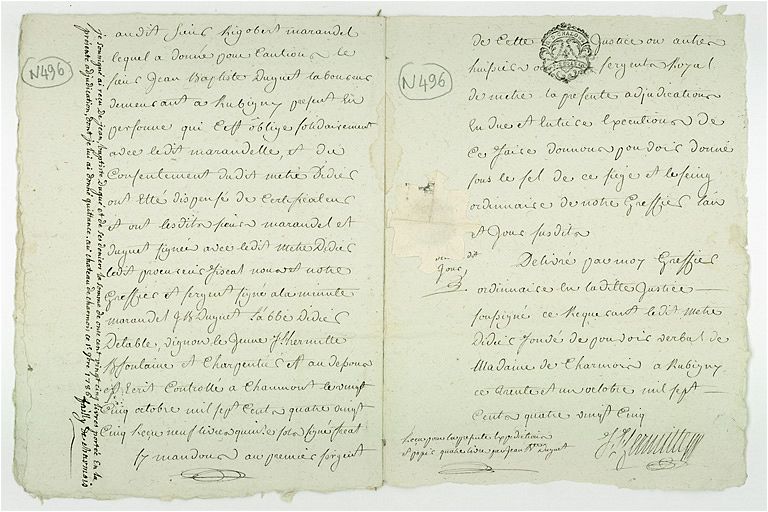 N496
audit sieur Rigobert marandel
lequel a donné pour Cautions le
sieur Jean Baptiste Duguet laboureur
demeurant a Rubigny present En
personne qui C'est obligé solidairement
avec ledit marandelle, et du
Consentement dudit metre Didier
ont Etté dispensé de Certificateur
et ont lesdits sieurs marandel et
Duguet signée avec ledit metre Didier
ledit procureur fiscal nous et notre
Greffier et sergent signé a la minute
marandel JB Duguet L'abbé Didier
Delable, vignon le Jeune J Lhermitte
B fontaine et Charpentier Et au dessous
est Ecrit Controllé a Chaumont le vingt
Cinq octobre mil sept Cent quatre vingt
Cinq Reçu neuf livres quinze sols signé
Sy mandons au premier sergent
je soussigné ai reçu de jean baptiste Duguet et de ses deniers la somme de cent vingt cinq livres portée En la
présente adjudication, dont je lui ai donné quittance. au chateau de charmois ce 1er 9bre 1786
N496
de Cette Justice ou autre
huissier ou sergent Royal
de metre la presente adjudications
En due et Entiere Executions de
Ce faire donnons pouvoir donné
sous le sel de ce siege et le seing
ordinnaire de notre Greffier l'an
et Jour susdits
Delivré par moy Greffier
ordinnaire en laditte Justice
soussigné ce Requerant ledit metre
Didier fondé de pouvoir verbal de
Madame de Charmois a Rubigny
ce trente et un octobre mil sept
Cent quatre vingt Cinq
Reçu pour la presente Expedition
et papier quatre livres par Jean Bte Duguet
J Lhermitte